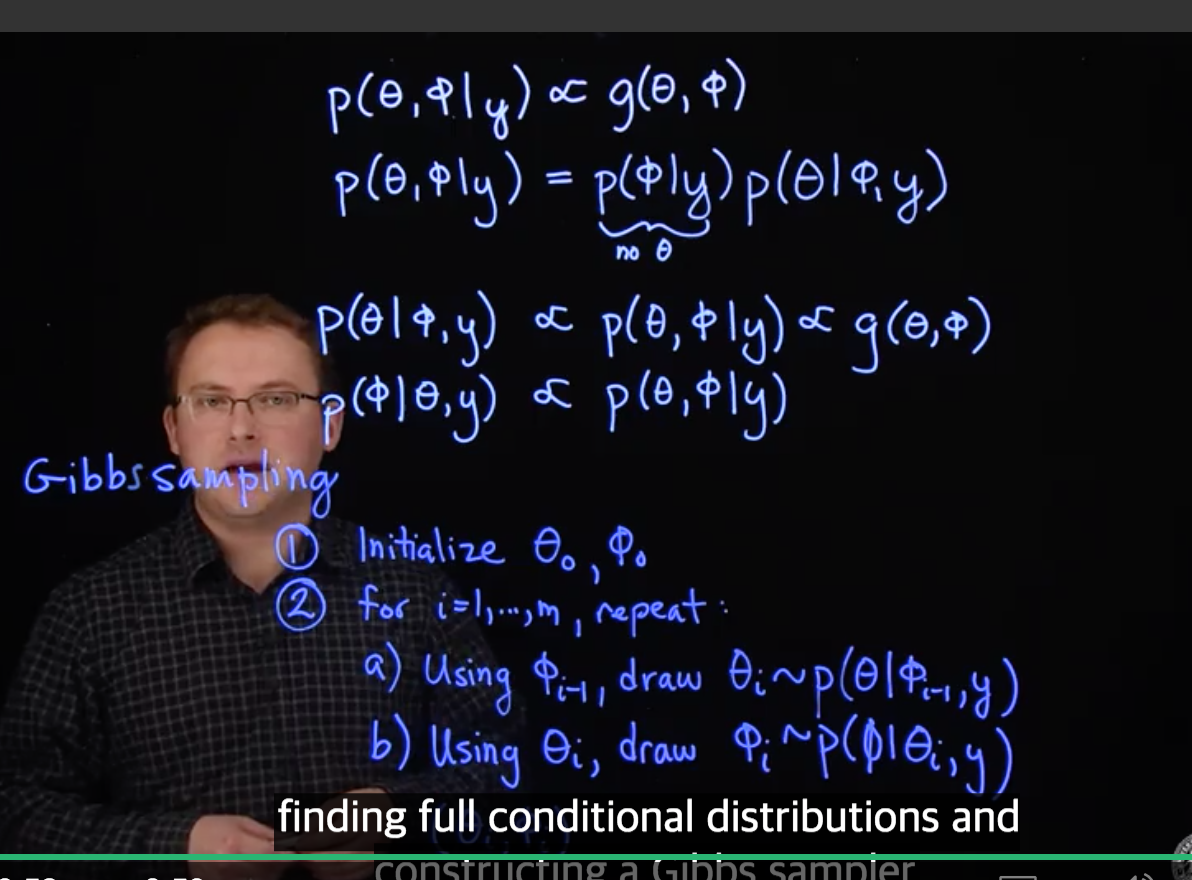 p(θ,Φ|y) ∝ g(θ,Φ)
p(θ,Φ|y) = p(Φ|y) p(θ|Φ,y)
no θ
p(θ|Φ,y) ∝ p(θ,Φ|y) ∝ g(θ,Φ)
p(Φ|θ,y) ∝ p(θ,Φ|y)
Gibbs sampling
① Initialize θ₀, Φ₀
② for i=1,...,m, repeat:
a) Using Φᵢ₋₁, draw θᵢ ~ p(θ|Φᵢ₋₁,y)
b) Using θᵢ, draw Φᵢ ~ p(Φ|θᵢ,y)
finding full conditional distributions and
constructing a Gibbs sampler